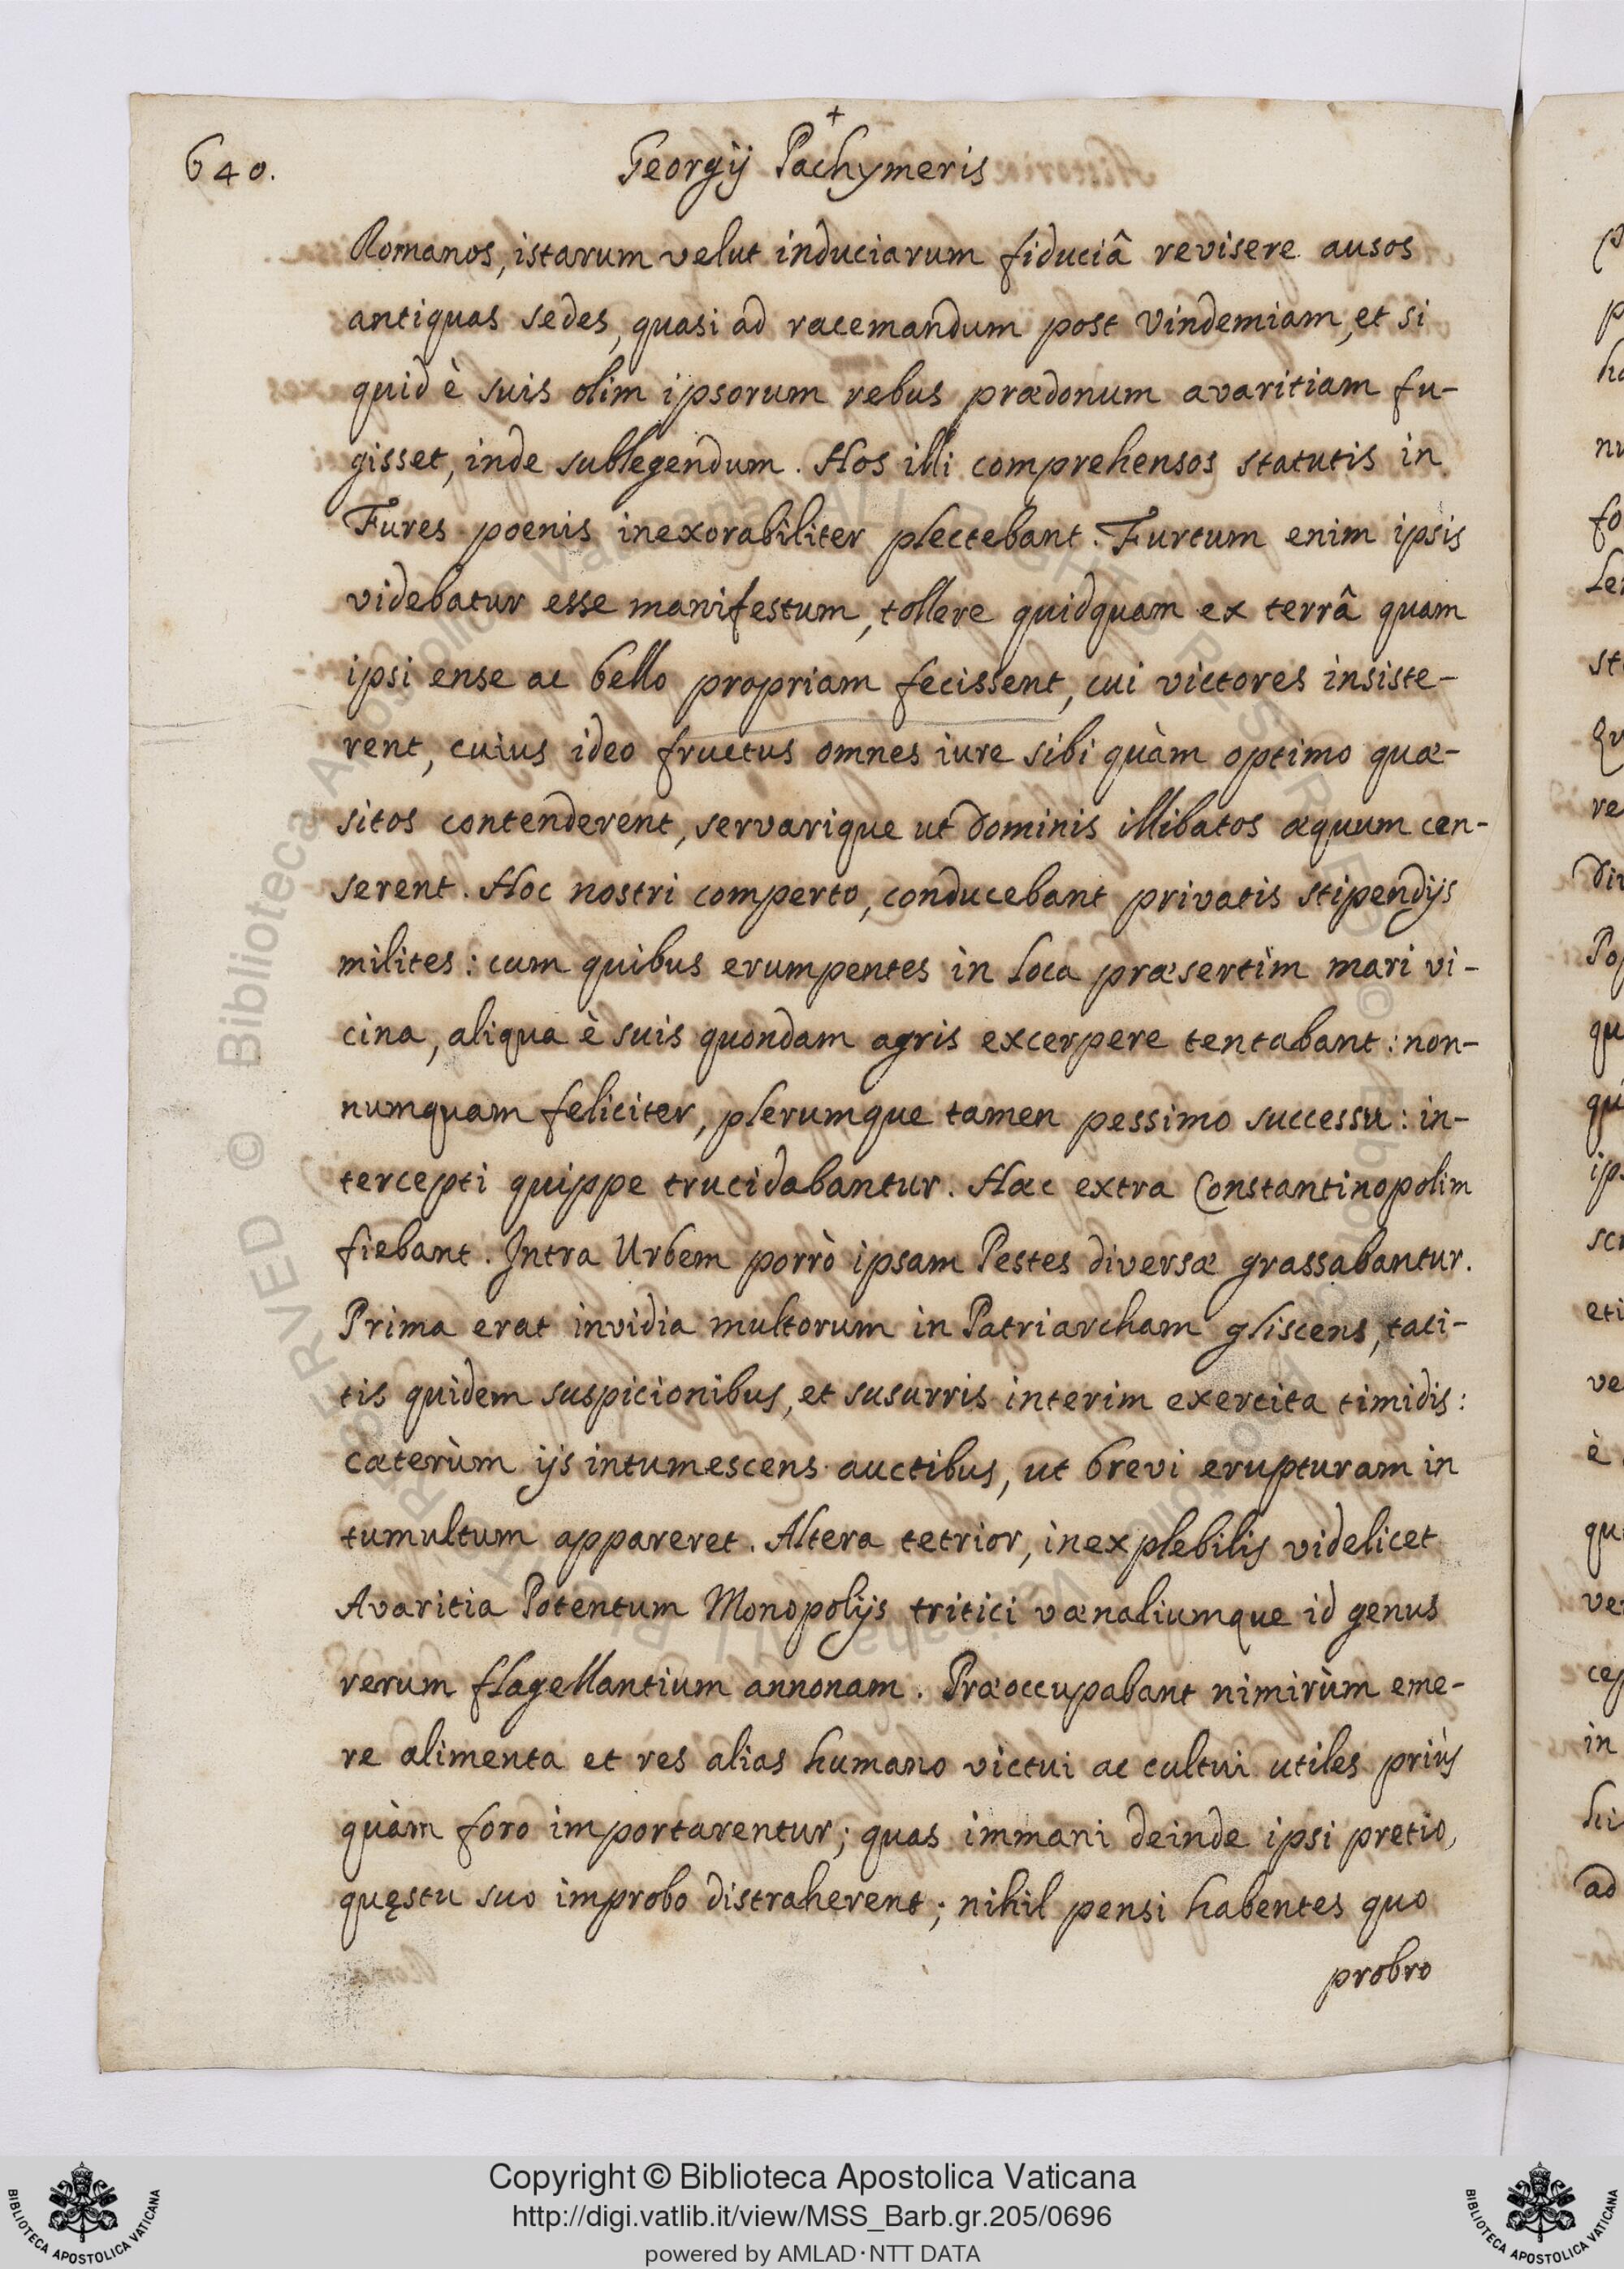 640.
+
Georgij Pachymeris
Romanos, istarum velut induciarum fiduciâ revisere ausos
antiquas sedes, quasi ad racemandum post vindemiam, et si
quid è suis olim ipsorum rebus prædonum avaritiam fu-
gisset, inde sublegendum. Hos illi comprehensos statutis in
Fures poenis inexorabiliter plectebant. Furtum enim ipsis
videbatur esse manifestum, tollere quidquam ex terrâ quam
ipsi ense ac bello propriam fecissent, cui victores insiste-
rent, cuius ideo fructus omnes iure sibi quàm optimo quæ-
sitos contenderent, servarique ut dominis illibatos æquum cen-
serent. Hoc nostri comperto, conducebant privatis stipendijs
milites: cum quibus erumpentes in loca præsertim mari vi-
cina, aliqua è suis quondam agris excerpere tentabant: non-
numquam feliciter, plerumque tamen pessimo successu: in-
tercepti quippe trucidabantur. Hæc extra Constantinopolim
fiebant. Intra Urbem porrò ipsam Pestes diversæ grassabantur.
Prima erat invidia multorum in Patriarcham gliscens, taci-
tis quidem suspicionibus, et susurris interim exercita timidis:
cæterùm ijs intumescens auctibus, ut brevi erupturam in
tumultum appareret. Altera tetrior, inexplebilis videlicet
Avaritia Potentum Monopolijs tritici vænaliumque id genus
rerum flagellantium annonam. Præoccupabant nimirùm eme-
re alimenta et res alias humano victui ac cultui utiles priùs
quàm foro importarentur; quas immani deinde ipsi pretio,
quęstu suo improbo distraherent; nihil pensi habentes quo
probro
Copyright © Biblioteca Apostolica Vaticana
http://digi.vatlib.it/view/MSS_Barb.gr.205/0696
powered by AMLAD·NTT DATA
BIBLIOTECA APOSTOLICA VATICANA
BIBLIOTECA APOSTOLICA VATICANA